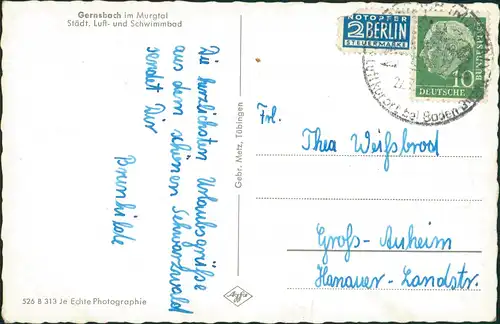 Gernsbach im Murgtal
Städt. Luft- und Schwimmbad
Die herzlichsten Urlaubsgrüße
aus dem schönen Schwarzwald
sendet Dir
Brunhilde
526 B 313 Je Echte Photographie
Gebr. Metz, Tübingen
NOTOPFER
2 BERLIN
STEUERMARKE
10
DEUTSCHE
BUNDESPOST
Frl.
Thea Weißbrod
Groß-Auheim
Hanauer-Landstr.